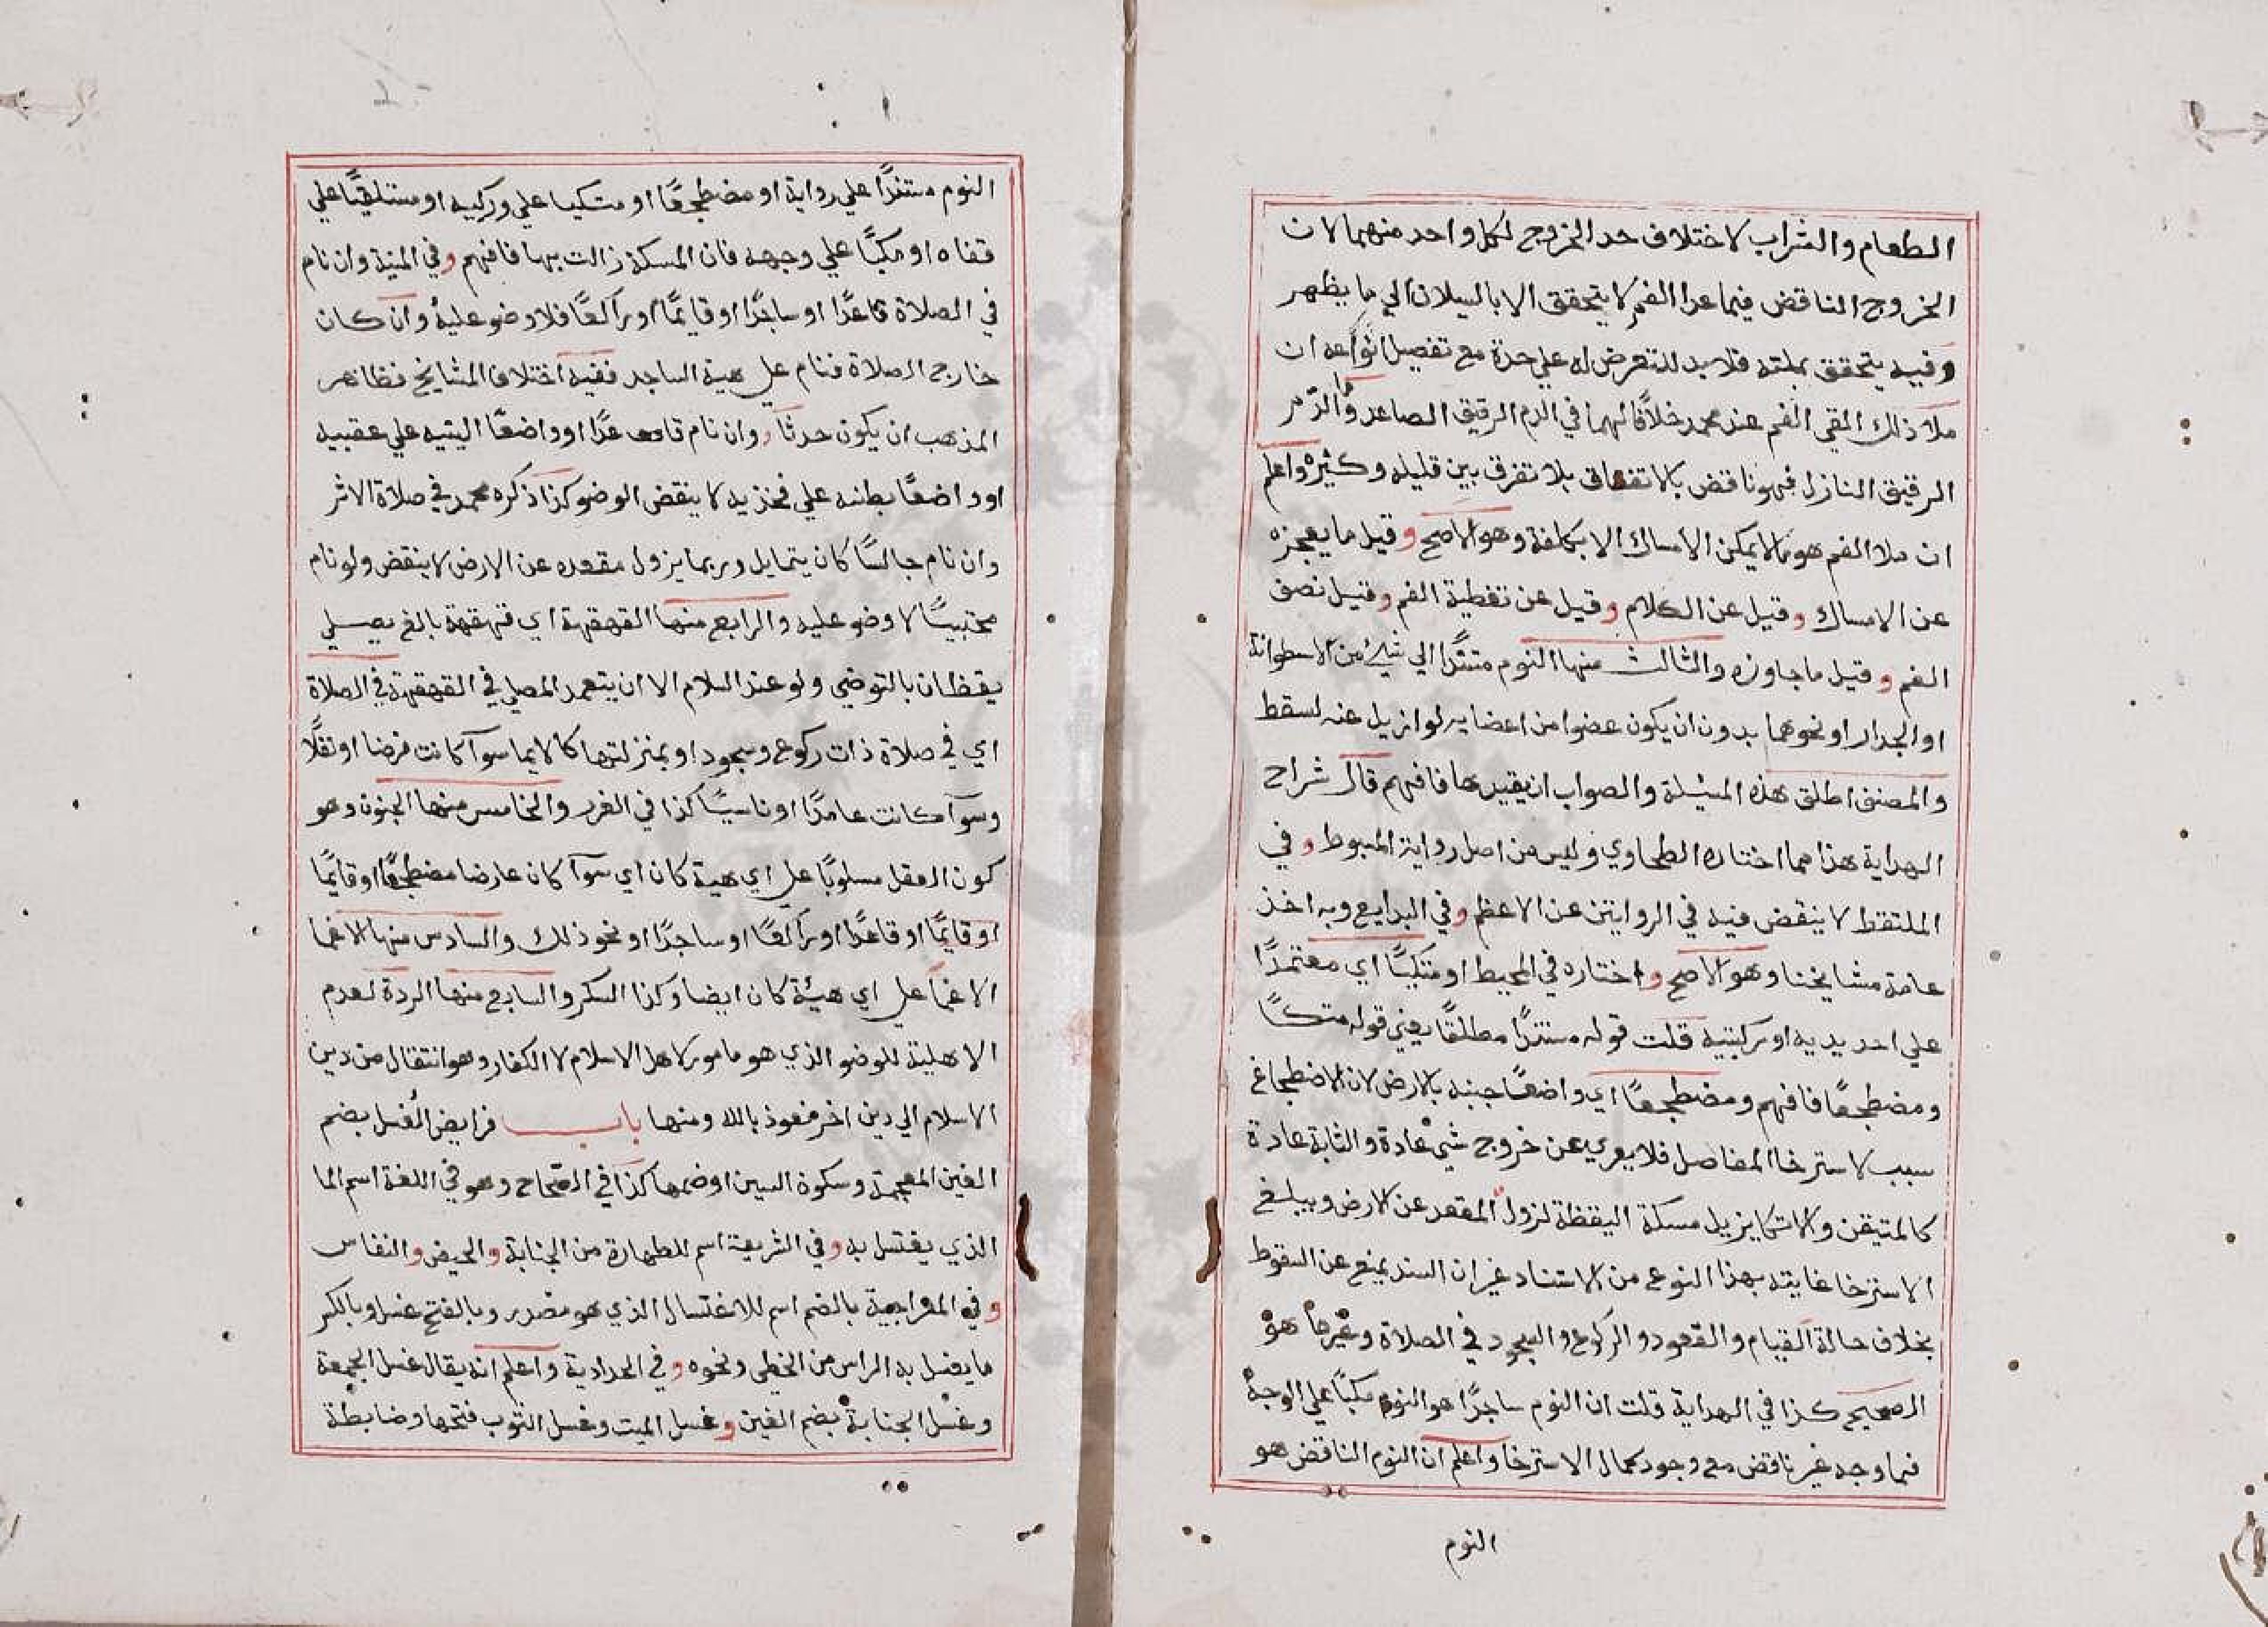 الطعام والشراب لاختلاف حد الخروج لكل واحد منهما لان
الخروج الناقض فيما عدا الفم لا يتحقق الا بالسيلان الي ما يظهر
وفيه يتحقق بملئه فلا بد للتعرض له علي حدة مع تفصيل انواعه ان
ملا ذلك القي الفم عند محمد خلافا لهما في الدم الرقيق الصاعد والدم
الرقيق النازل فهو ناقض بالاتفاق بلا تفرق بين قليله وكثيره واعلم
ان ملا الفم هو ما لا يمكن الامساك الا بكلفة وهو الاصح وقيل ما يعجزه
عن الامساك وقيل عن الكلام وقيل عن تغطية الفم وقيل نصف
الفم وقيل ما جاوزه والثالث منها النوم مستندًا الي شئ من الاسطوانة
او الجدار او نحوهما بدون ان يكون عضوا من اعضايه لو ازيل عنه لسقط
والمصنف اطلق هذه المسئلة والصواب ان يقيدها فافهم قال شراح
الهداية هذا مما اختاره الطحاوي وليس من اصل رواية المبسوط وفي
الملتقط لا ينقض فيه في الروايتين عن الاعظم وفي البدايع وبه اخذ
عامة مشايخنا وهو الاصح واختاره في المحيط او متكيًا اي معتمدًا
علي احد يديه او ركبتيه قلت قوله مستندًا مطلقًا يغني قوله متكًا
ومضطجعًا فافهم ومضطجعًا اي واضعًا جنبه بالارض لان الاضطجاع
سبب لاسترخا المفاصل فلا يعري عن خروج شئ عادة والثابة عادة
كالمتيقن والاتكا يزيل مسكة اليقظة لزوال المقعد عن الارض ويبلغ
الاسترخا غايته بهذا النوع من الاستناد غير ان السند يمنع عن السقوط
بخلاف حالة القيام والقعود والركوع والسجود في الصلاة وغيرها هو
الصحيح كذا في الهداية قلت ان النوم ساجدًا هو النوم مكبًا علي الوجه
فما وجه غير ناقض مع وجود كمال الاسترخا واعلم ان النوم الناقض هو
النوم
النوم مستندًا علي رواية او مضطجعًا او متكيا علي وركيه او مستلقيًا علي
قفاه او مكبًا علي وجهه فان المسكة زالت بها فافهم وفي المنية وان نام
في الصلاة قاعدًا او ساجدًا او قايمًا او راكعًا فلا وضو عليه وان كان
خارج الصلاة فنام علي هية الساجد ففيه اختلاف المشايخ فظاهر
المذهب ان يكون حدثا وان نام قاعدًا او واضعًا اليتيه علي عقبيه
او واضعًا بطنه علي فخذيه لا ينقض الوضو كذا ذكره محمد في صلاة الاثر
وان نام جالسًا كان يتمايل وربما يزول مقعده عن الارض لا ينقض ولو نام
محتبيًا لا وضو عليه والرابع منها القهقهة اي قهقهة بالغ يصلي
يقظان بالتوضي ولو عند السلام الا ان يتعمد المصلي في القهقهة في الصلاة
اي في صلاة ذات ركوع وسجود او بمنزلتها كالايما سوآ كانت فرضا او نفلًا
وسوآ كانت عامدًا او ناسيًا كذا في الغرر والخامس منها الجنون وهو
كون العقل مسلوبًا علي اي هية كان اي سوآ كان عارضا مضطجعًا او قايمًا
او قايمًا او قاعدًا او راكعًا او ساجدًا او نحو ذلك والسادس منها الاغما
الاغما علي اي هيئة كان ايضا وكذا السكر والسابع منها الردة لعدم
الاهلية للوضو الذي هو مامور لاهل الاسلام لا الكفار وهو انتقال من دين
الاسلام الي دين اخر فنعوذ بالله ومنها باب فرايض الغسل بضم
الغين المعجمة وسكون السين او ضمها كذا في الصحاح وهو في اللغة اسم الما
الذي يغتسل به وفي الشريعة اسم للطهارة من الجنابة والحيض والنفاس
وفي المعراجية بالضم اسم للاغتسال الذي هو مصدر وبالفتح غسل وبالكسر
ما يغسل به الراس من الخطي ونحوه وفي الحدادية واعلم انه يقال غسل الجمعة
وغسل الجنابة بضم الغين وغسل الميت وغسل الثوب فتحها وضابطة